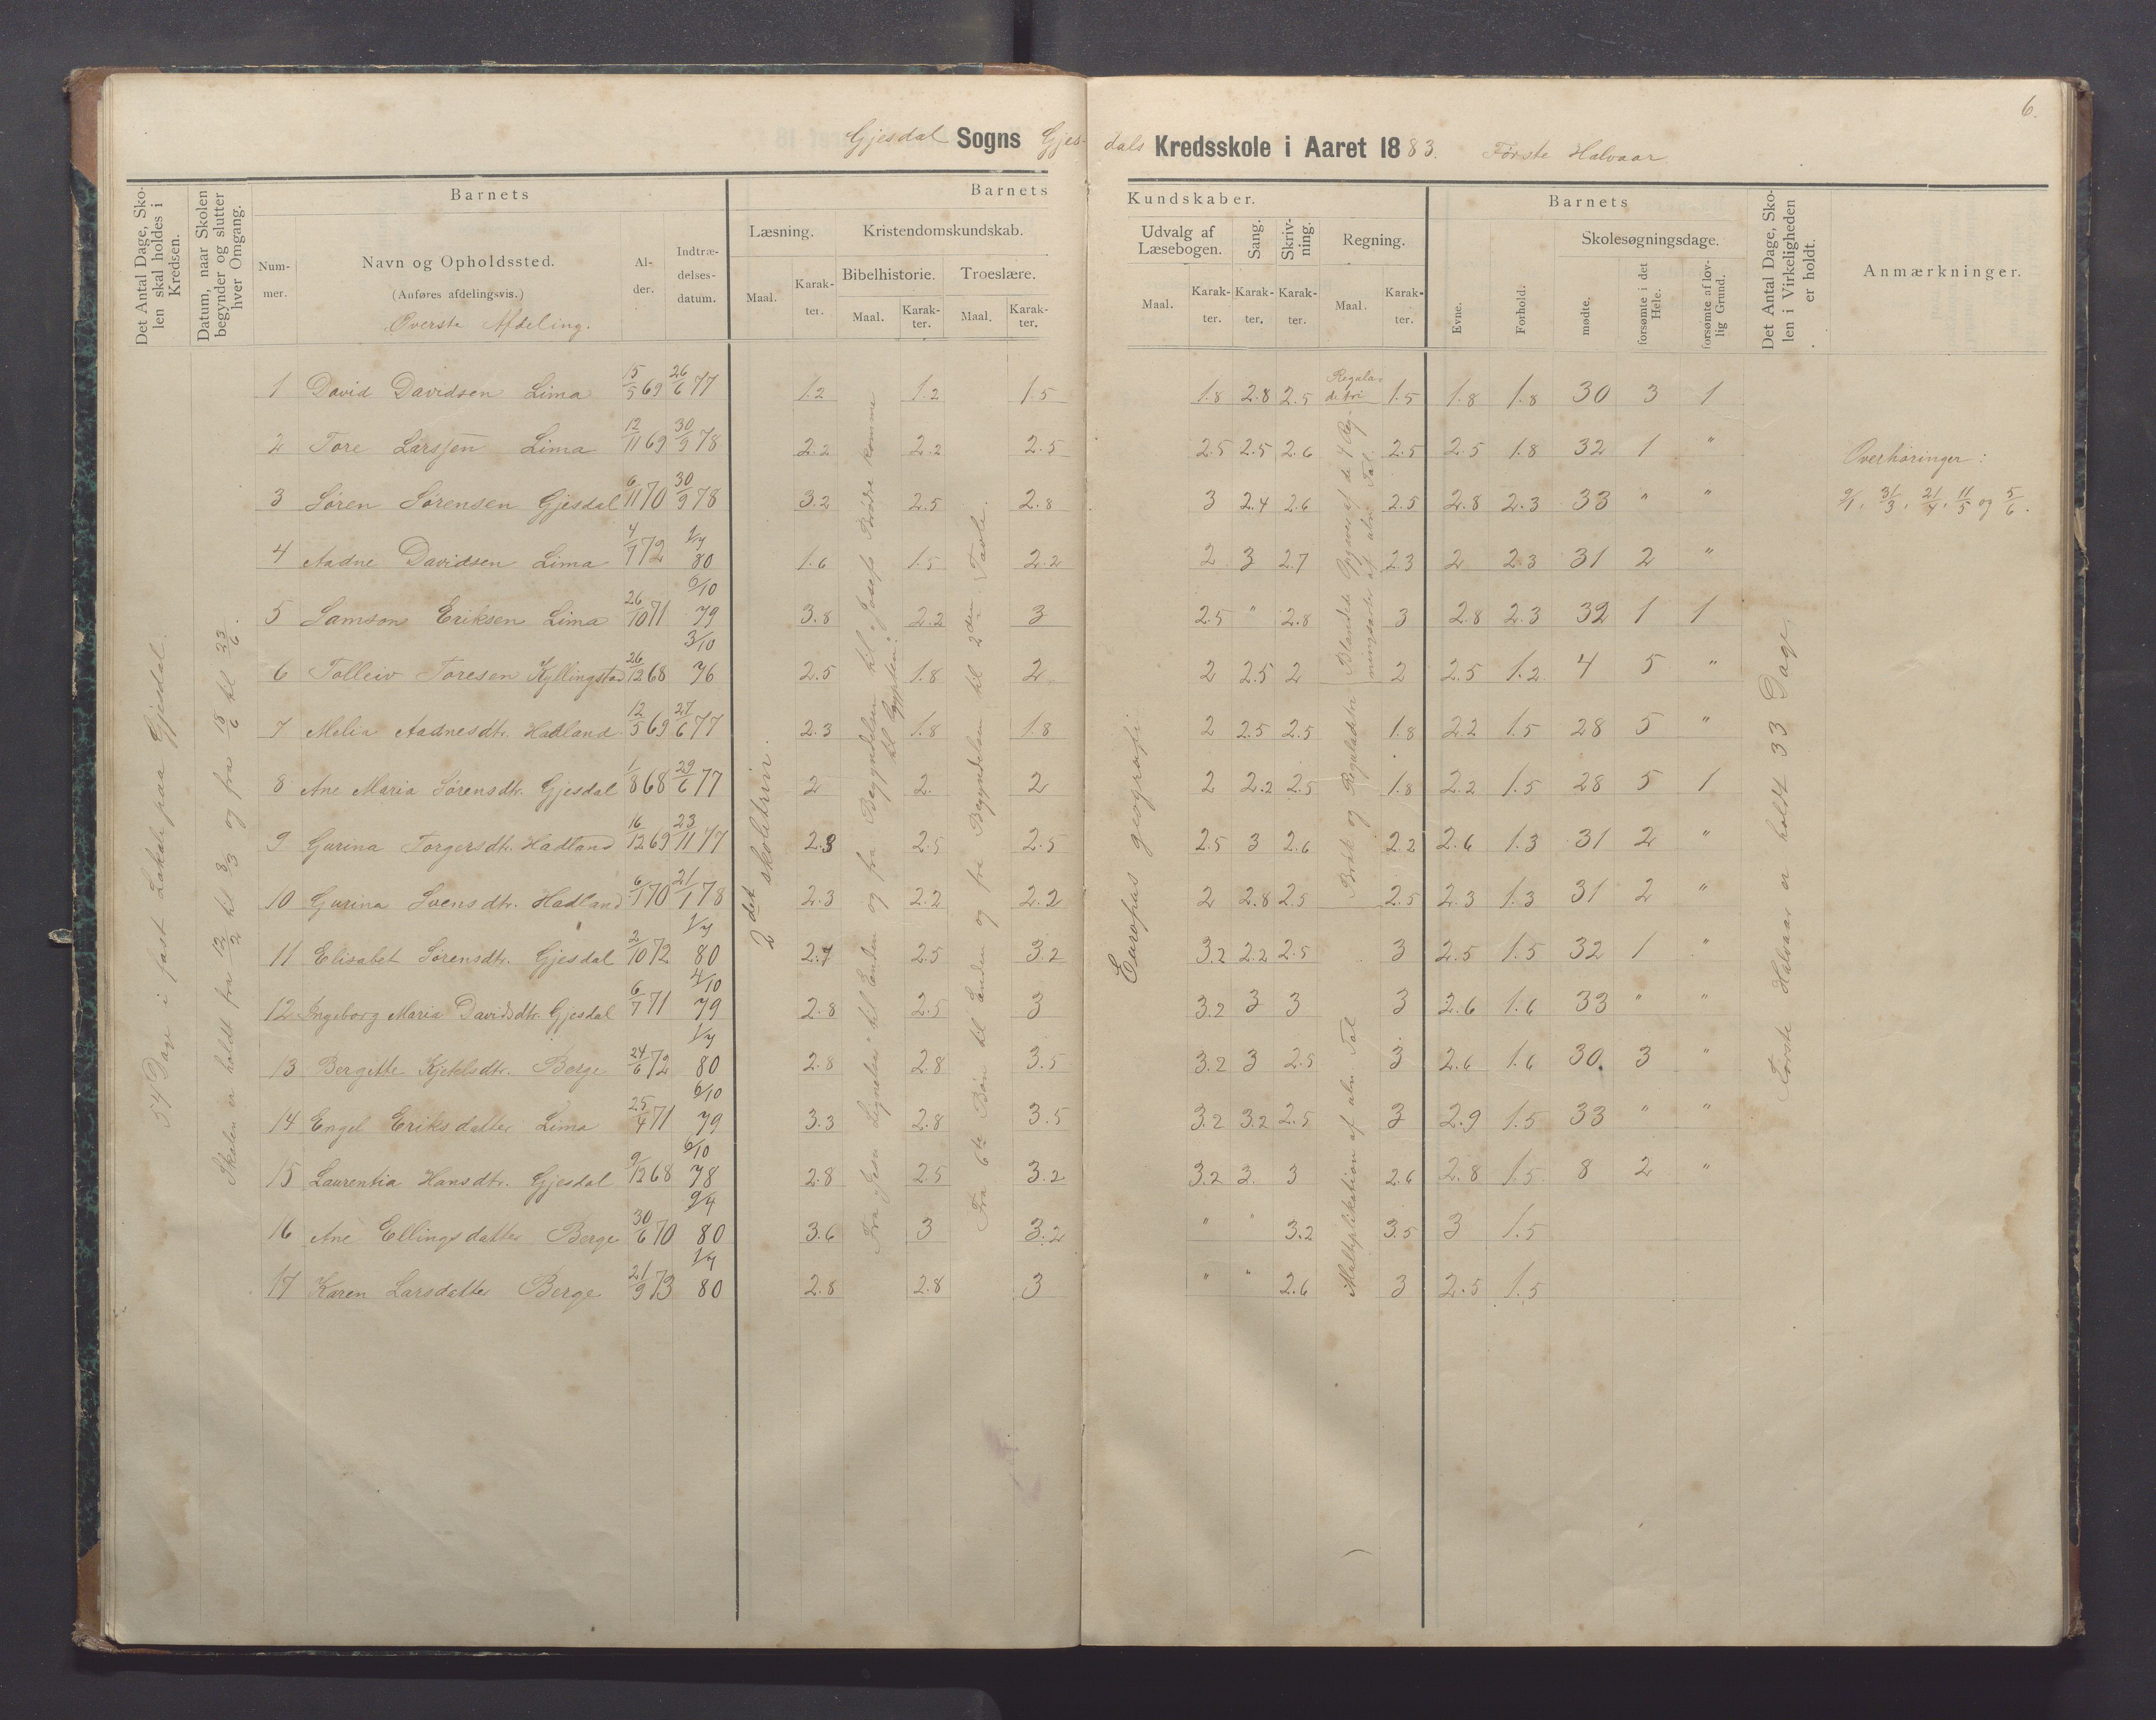 6.
Gjesdal Sogns Gjes-
dals Kredsskole i Aaret 1883. Første Halvaar
Det Antal Dage, Skolen skal holdes i Kredsen.
Datum, naar Skolen begynder og slutter hver Omgang.
Barnets
Nummer.
Navn og Opholdssted.
(Anføres afdelingsvis.)
Øverste Afdeling.
Alder.
Indtrædelsesdatum.
Barnets
Læsning.
Maal.
Karakter.
Kristendomskundskab.
Bibelhistorie.
Maal.
Karakter.
Troeslære.
Maal.
Karakter.
Kundskaber.
Udvalg af Læsebogen.
Maal.
Karakter.
Sang.
Karakter.
Skrivning.
Karakter.
Regning.
Maal.
Karakter.
Barnets
Evne.
Forhold.
Skolesøgningsdage.
mødte.
forsømte i det Hele.
forsømte af lovlig Grund.
Det Antal Dage, Skolen i Virkeligheden er holdt.
Anmærkninger.
54 Dage i fast Lokale paa Gjesdal.
Skolen er holdt fra 12/2 til 3/3 og fra 18/6 til 23/6.
2det skoletrin.
Fra "Jesu Lignelser" til Enden og fra Begyndelsen til "Josefs Brødre komme til Egypten".
Fra 6te Bøn til Enden og fra Begyndelsen til 2den Tavle.
Europas geografi
Regula de tri
Brøk og Reguladetri
Blandede Opgaver af de 4 Regningsarter af ubn. Tal.
Multiplikation af ubn. Tal
Første Halvaar er holdt 33 Dage.
Overhøringer:
9/1, 31/3, 21/4, 11/5 og 5/6.
1 David Davidsen Lima 15/5 69 26/6 77 1.2 1.2 1.5 1.8 2.8 2.5 1.5 1.8 1.8 30 3 1
2 Tore Larssen Lima 12/11 69 30/9 78 2.2 2.2 2.5 2.5 2.5 2.6 2.5 2.5 1.8 32 1 "
3 Søren Sørensen Gjesdal 6/11 70 30/9 78 3.2 2.5 2.8 3 2.4 2.6 2.5 2.8 2.3 33 " "
4 Aadne Davidsen Lima 4/7 72 1/7 80 1.6 1.5 2.2 2 3 2.7 2.3 2 2.3 31 2 "
5 Samson Eriksen Lima 26/10 71 6/10 79 3.8 2.2 3 2.5 " 2.8 3 2.8 2.3 32 1 1
6 Tolleiv Toresen Kyllingstad 26/12 68 3/10 76 2.5 1.8 2 2 2.5 2 2 2.5 1.2 4 5 "
7 Melia Aadnesdtr. Hadland 12/5 69 27/6 77 2.3 1.8 1.8 2 2.5 2.5 1.8 2.2 1.5 28 5 "
8 Ane Maria Sørensdtr. Gjesdal 1/8 68 29/6 77 2 2. 2 2 2.2 2.5 1.8 2.2 1.5 28 5 1
9 Gurina Torgersdtr. Hadland 16/12 69 23/11 77 2.3 2.5 2.5 2.5 3 2.6 2.2 2.6 1.3 31 2 "
10 Gurina Svensdtr. Hadland 6/1 70 21/1 78 2.3 2.2 2.2 2 2.8 2.5 2.5 2.3 1.3 31 2 "
11 Elisabet Sørensdtr. Gjesdal 2/10 72 1/7 80 2.7 2.5 3.2 3.2 2.2 2.5 3 2.5 1.5 32 1 "
12 Ingeborg Maria Davidsdtr. Gjesdal 6/7 71 4/10 79 2.8 2.5 3 3.2 3 3 3 2.6 1.6 33 " "
13 Bergitte Kjetelsdtr. Berge 24/6 72 1/7 80 2.8 2.8 3.5 3.2 3 2.5 3 2.6 1.6 30 3 "
14 Engel Eriksdatter Lima 25/4 71 6/10 79 3.3 2.8 3.5 3.2 3.2 2.5 3 2.9 1.5 33 " "
15 Laurentia Hansdtr. Gjesdal 9/12 68 6/10 78 2.8 2.5 3.2 3.2 2. 3 2.6 2.8 1.5 8 2 "
16 Ane Ellingsdatter Berge 30/6 70 9/4 80 3.6 3 3.2 " " 3.2 3.5 3 1.5
17 Karen Larsdatter Berge 21/9 73 1/7 80 2.8 2.8 3 " " 2.6 3 2.5 1.5